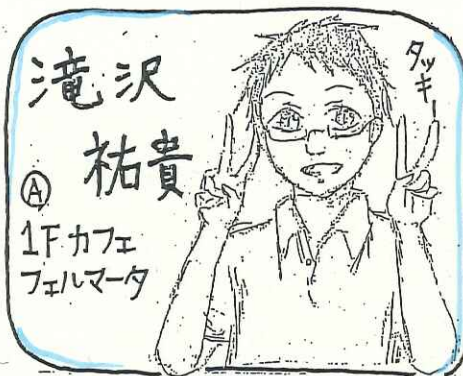 滝沢
祐貴
Ⓐ
1Fカフェ
フェルマータ
タッキー